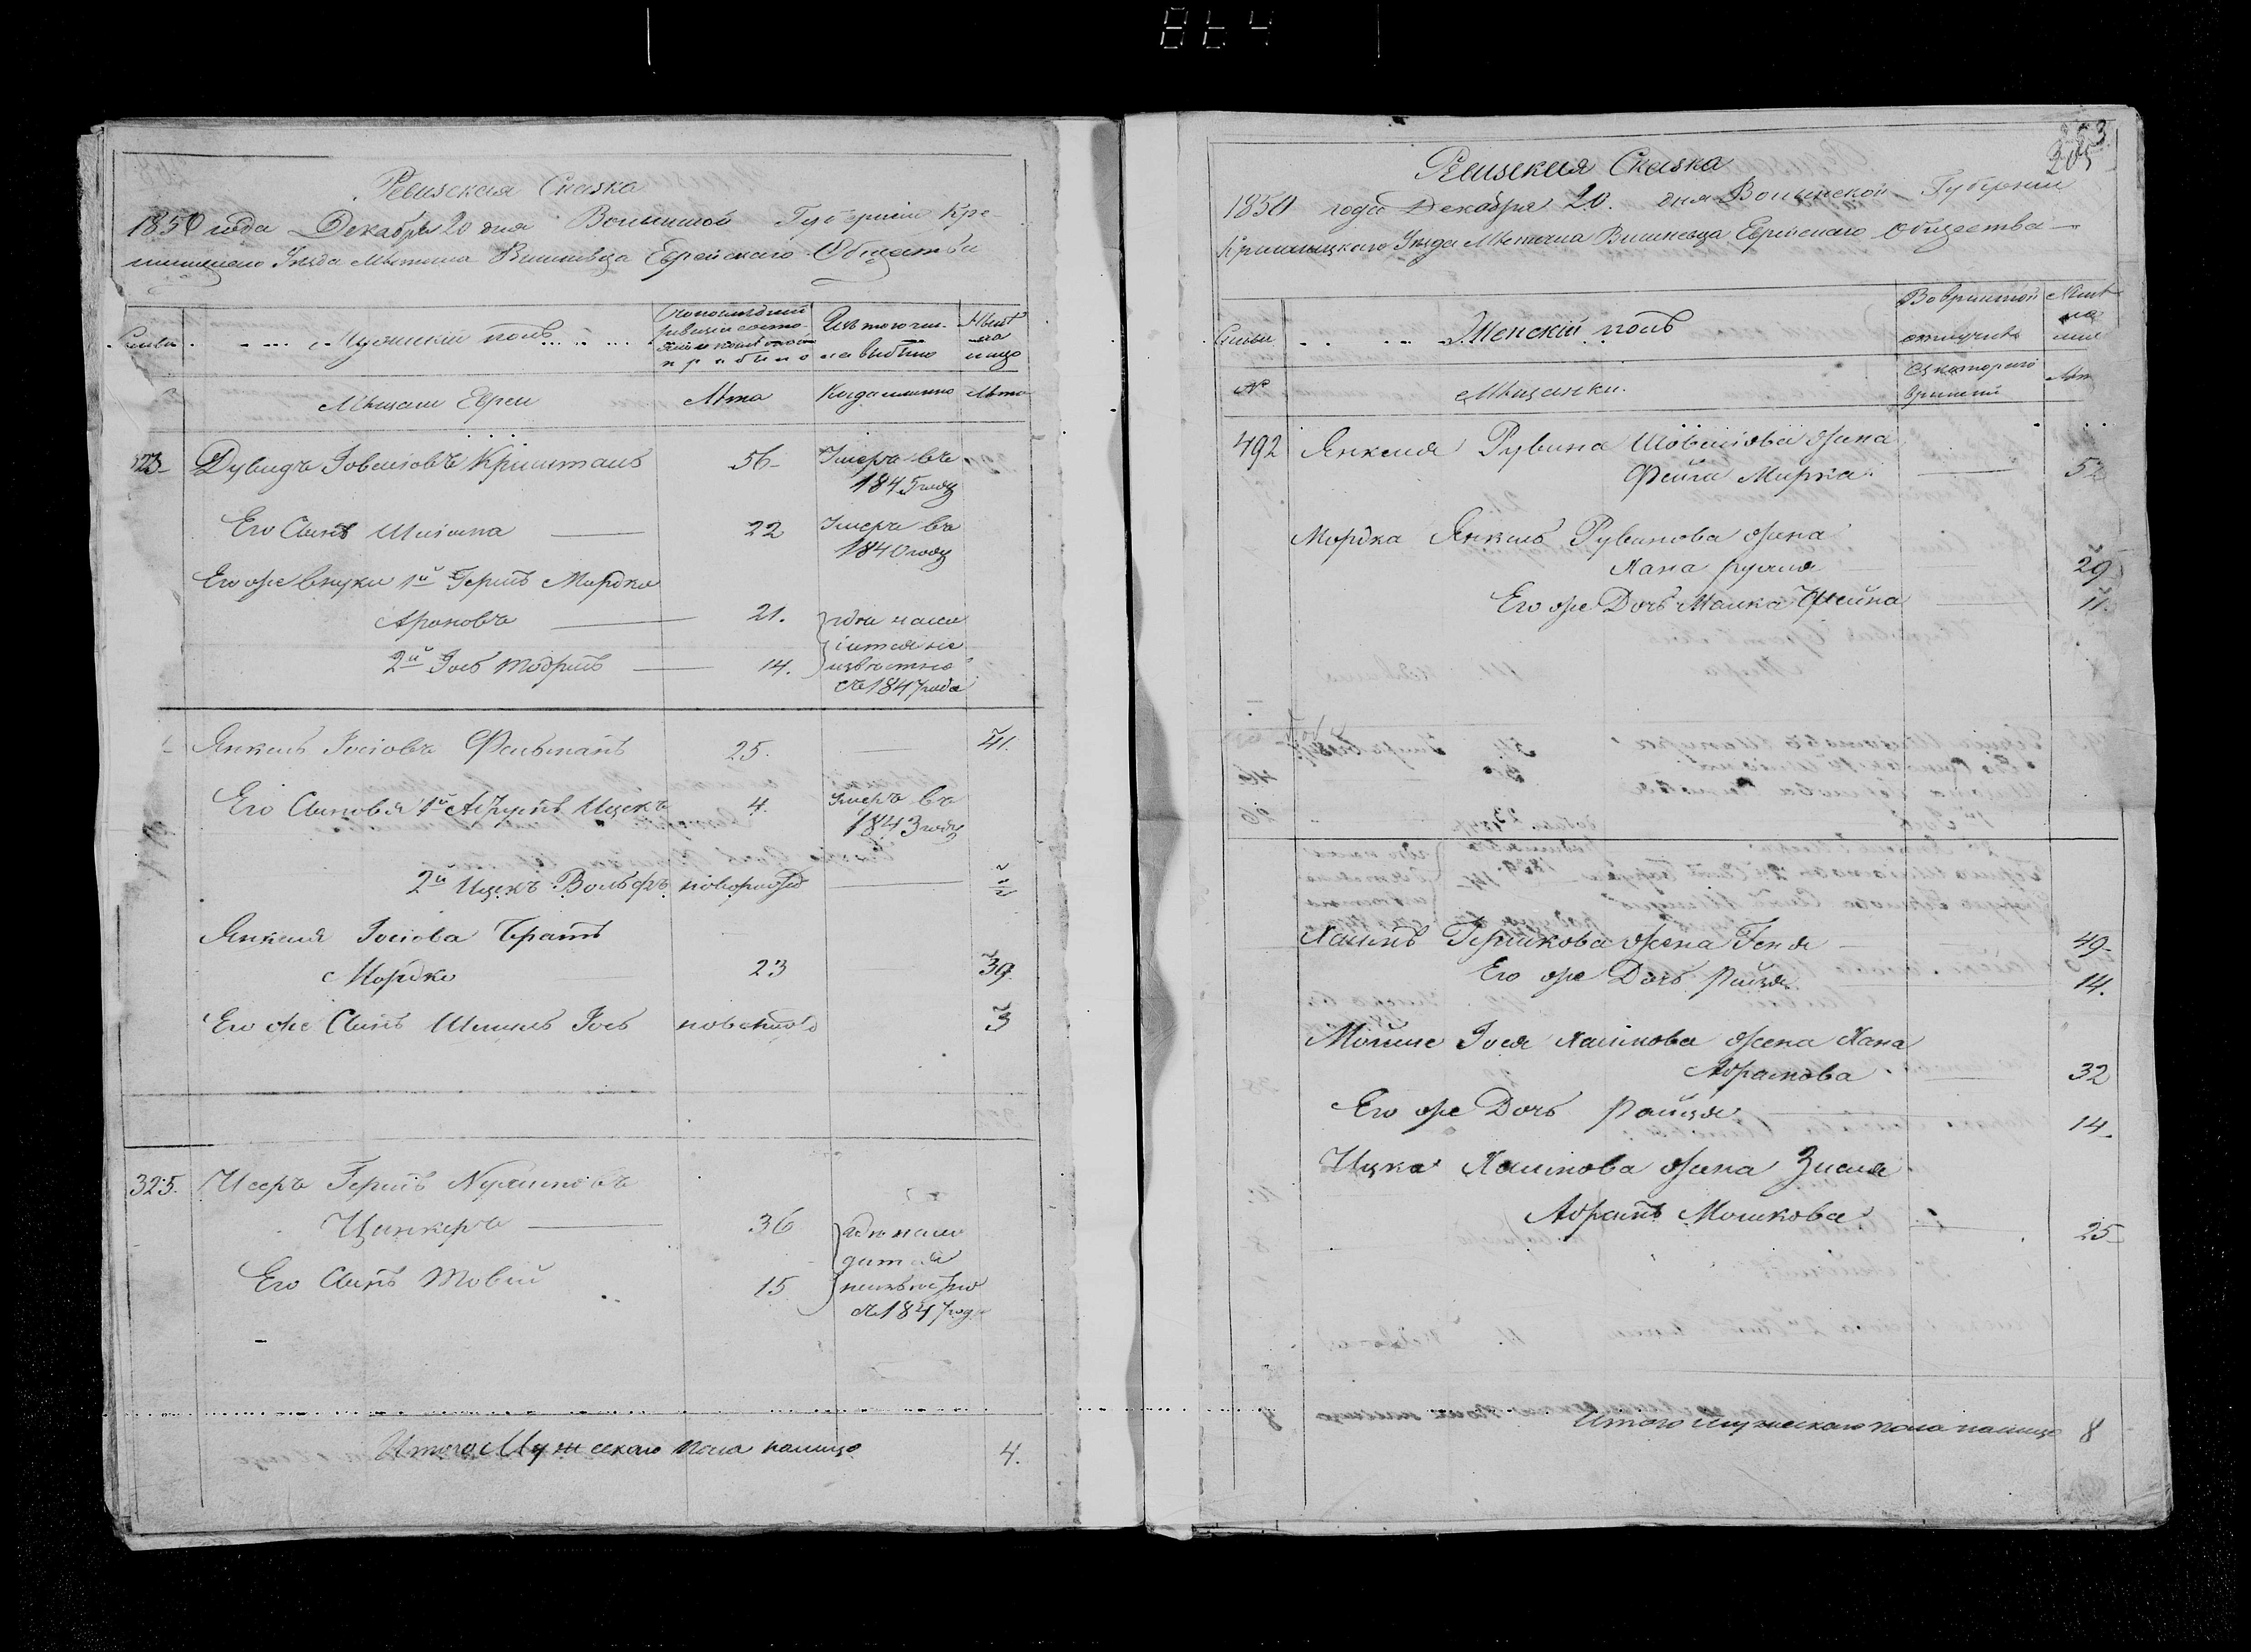 864
Ревизская Сказка
1850 года Декабря 20 дня Волынской Губернии Кре-
менецкаго Уезда Местечка Вишневца Еврейского Общества
Семьи
Мужеский полъ
По последней ревизии состо-
прибыло
Изъ того чи-
сла выбыло
Ныне
на
лицо
Мещане Евреи
Лета
Когда именно
Лета
323
Дувидъ Іовелiовъ Кришталъ
56
Умеръ въ
1845 году
Его Сынъ Шлiома
22
Умеръ въ
1840 году
Его же внуки 1й Гершъ Мордко
Ароновъ
21.
где нахо
дится не
2й Іосъ
14.
известно
съ 1847 года
Янкель Іосiовъ Фельтанъ
25.
41.
Его Сыновья 1й Ицекъ
4.
Умеръ въ
1843 году
2й Ицекъ Вольфъ
новорожд
Янкеля Іосiова Братъ
Мордко
23
39.
Его же Сынъ Шмиль Іосъ
3
325.
Исеръ Гершъ
Цинкеръ
36
где нахо
дится
Его Сынъ Товiй
15
неизвестно
съ 1847 года
Итого Мужескаго пола налицо
4.
353
205
Ревизская Сказка
1850 года Декабря 20. дня Волынской Губернии
Кременецкаго Уезда Местечка Вишневца Еврейскаго Общества
Семьи
Женскiй полъ
Во временной
отлучке
Ныне
на
лице
№
Мещанки.
Съ котораго
времени
Лета
492
Янкеля Рувина Шовелiова жена
Фейга Мирка
52
Мордка Янкель Рувинова жена
Хана Рухля
29
Его же Дочь Малка Шейна
11.
Хаимъ Гершкова жена Геня
49
Его же Дочь Райзя
14.
Мойше Іося Хаимова жена Хана
Абрамова
32
Его же Дочь Райзя
14.
Ицка Хаимова жена Зисля
Абрамъ Мошкова
25
Итого мужескаго пола налицо
8